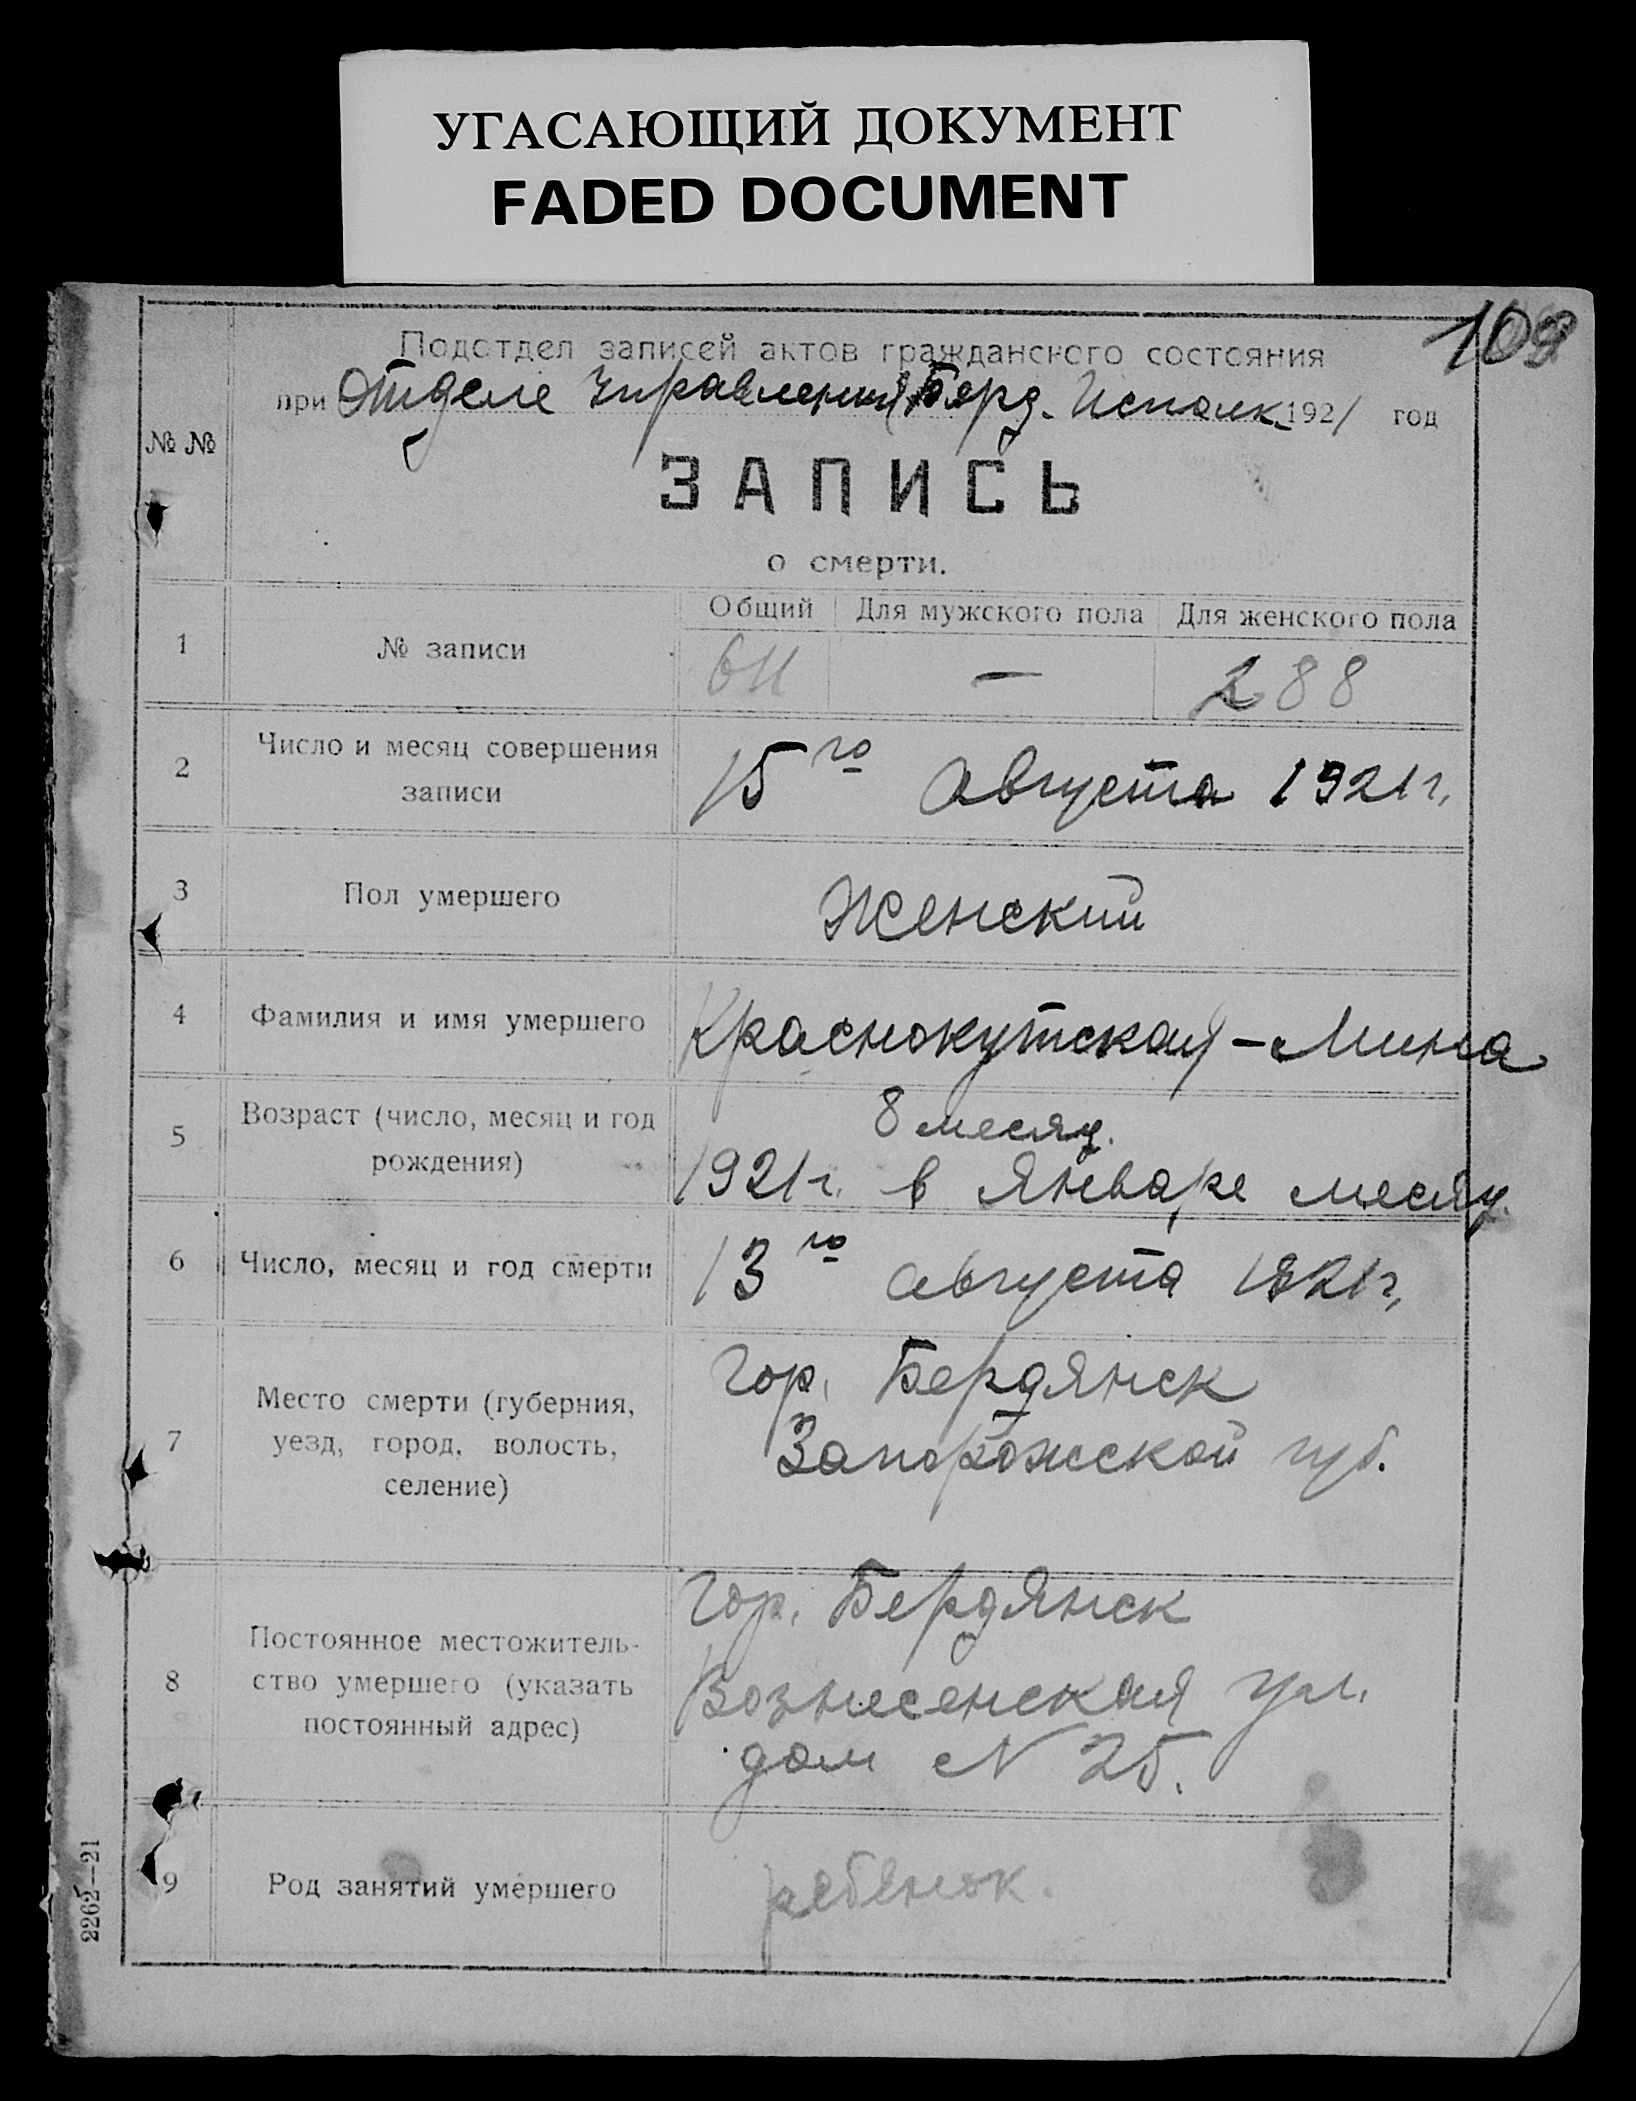 УГАСАЮЩИЙ ДОКУМЕНТ
FADED DOCUMENT
109
Подотдел записей актов гражданского состояния
при Отделе Управления Бярд. Исполк. 1921 год
№ №
ЗАПИСЬ
о смерти.
Общий Для мужского пола Для женского пола
1 № записи 611 — 288
2 Число и месяц совершения
записи
15го Августа 1921 г.
3 Пол умершего Женский
4 Фамилия и имя умершего Краснокутская – Мина
5 Возраст (число, месяц и год
рождения)
8 месяц.
1921 г. в Январе месяц.
6 Число, месяц и год смерти 13го августа 1921 г.
7 Место смерти (губерния,
уезд, город, волость,
селение)
Гор. Бердянск
Запорожской губ.
8 Постоянное местожитель-
ство умершего (указать
постоянный адрес)
Гор. Бердянск
Вознесенская ул.
дом N 25.
9 Род занятий умершего ребенок.
2262—21